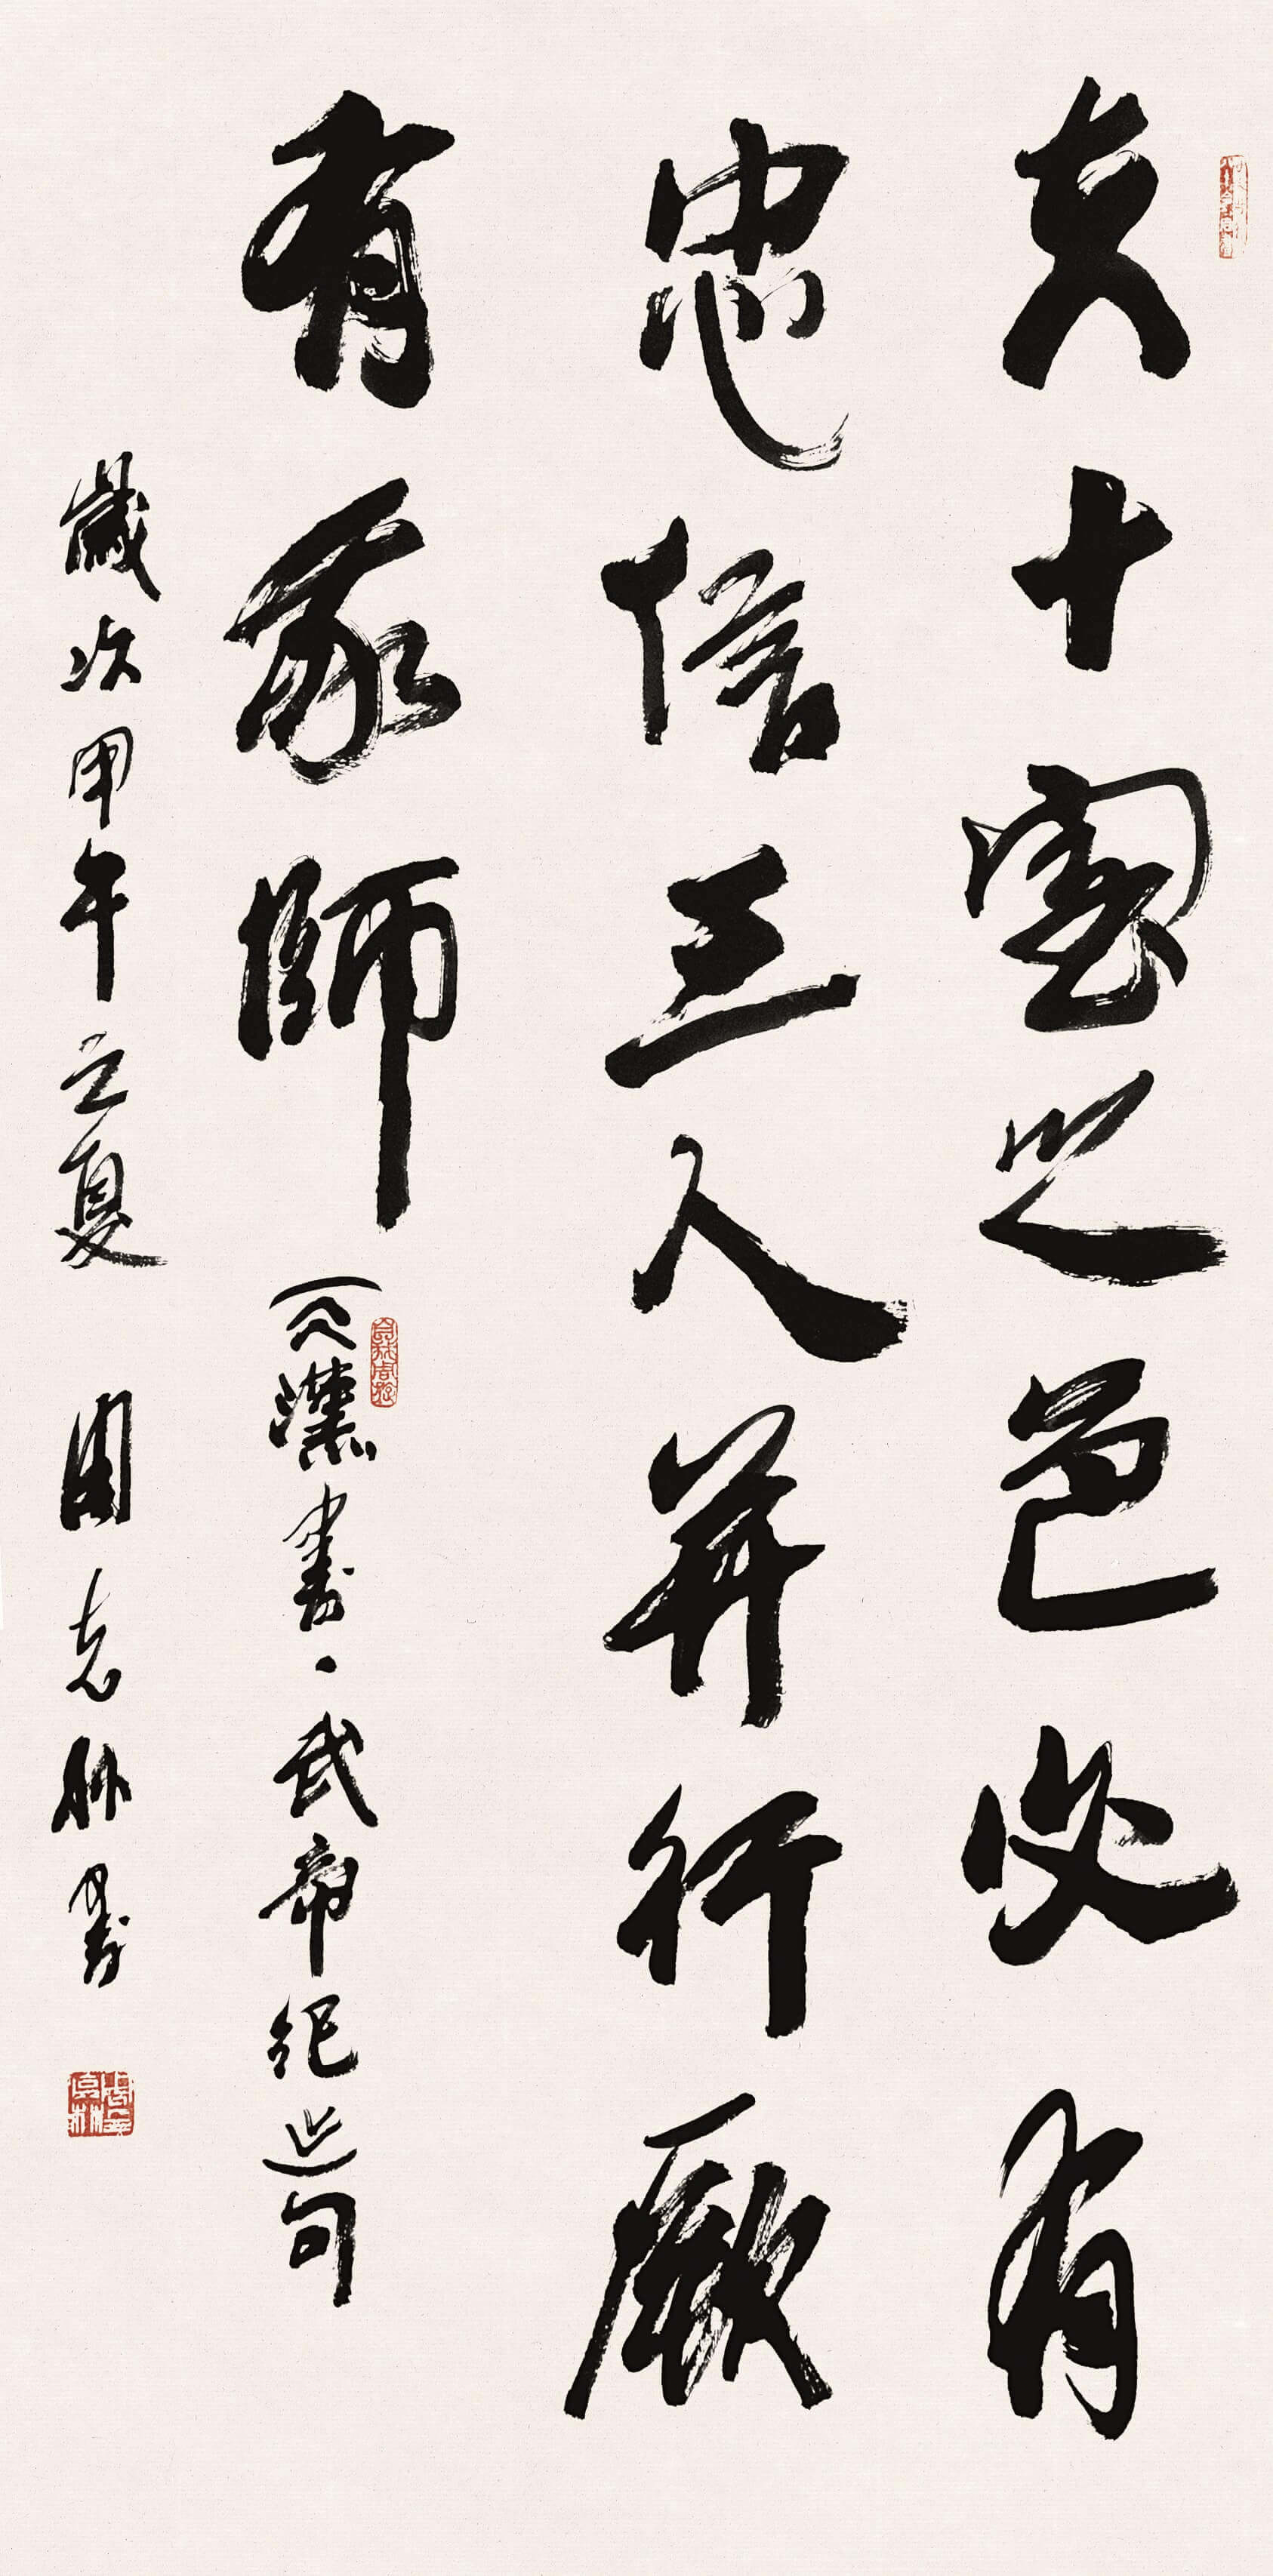 夫十室之邑必有
忠信三人并行厥
有我師
漢書·武帝紀造句
歲次甲午立夏 周志林書